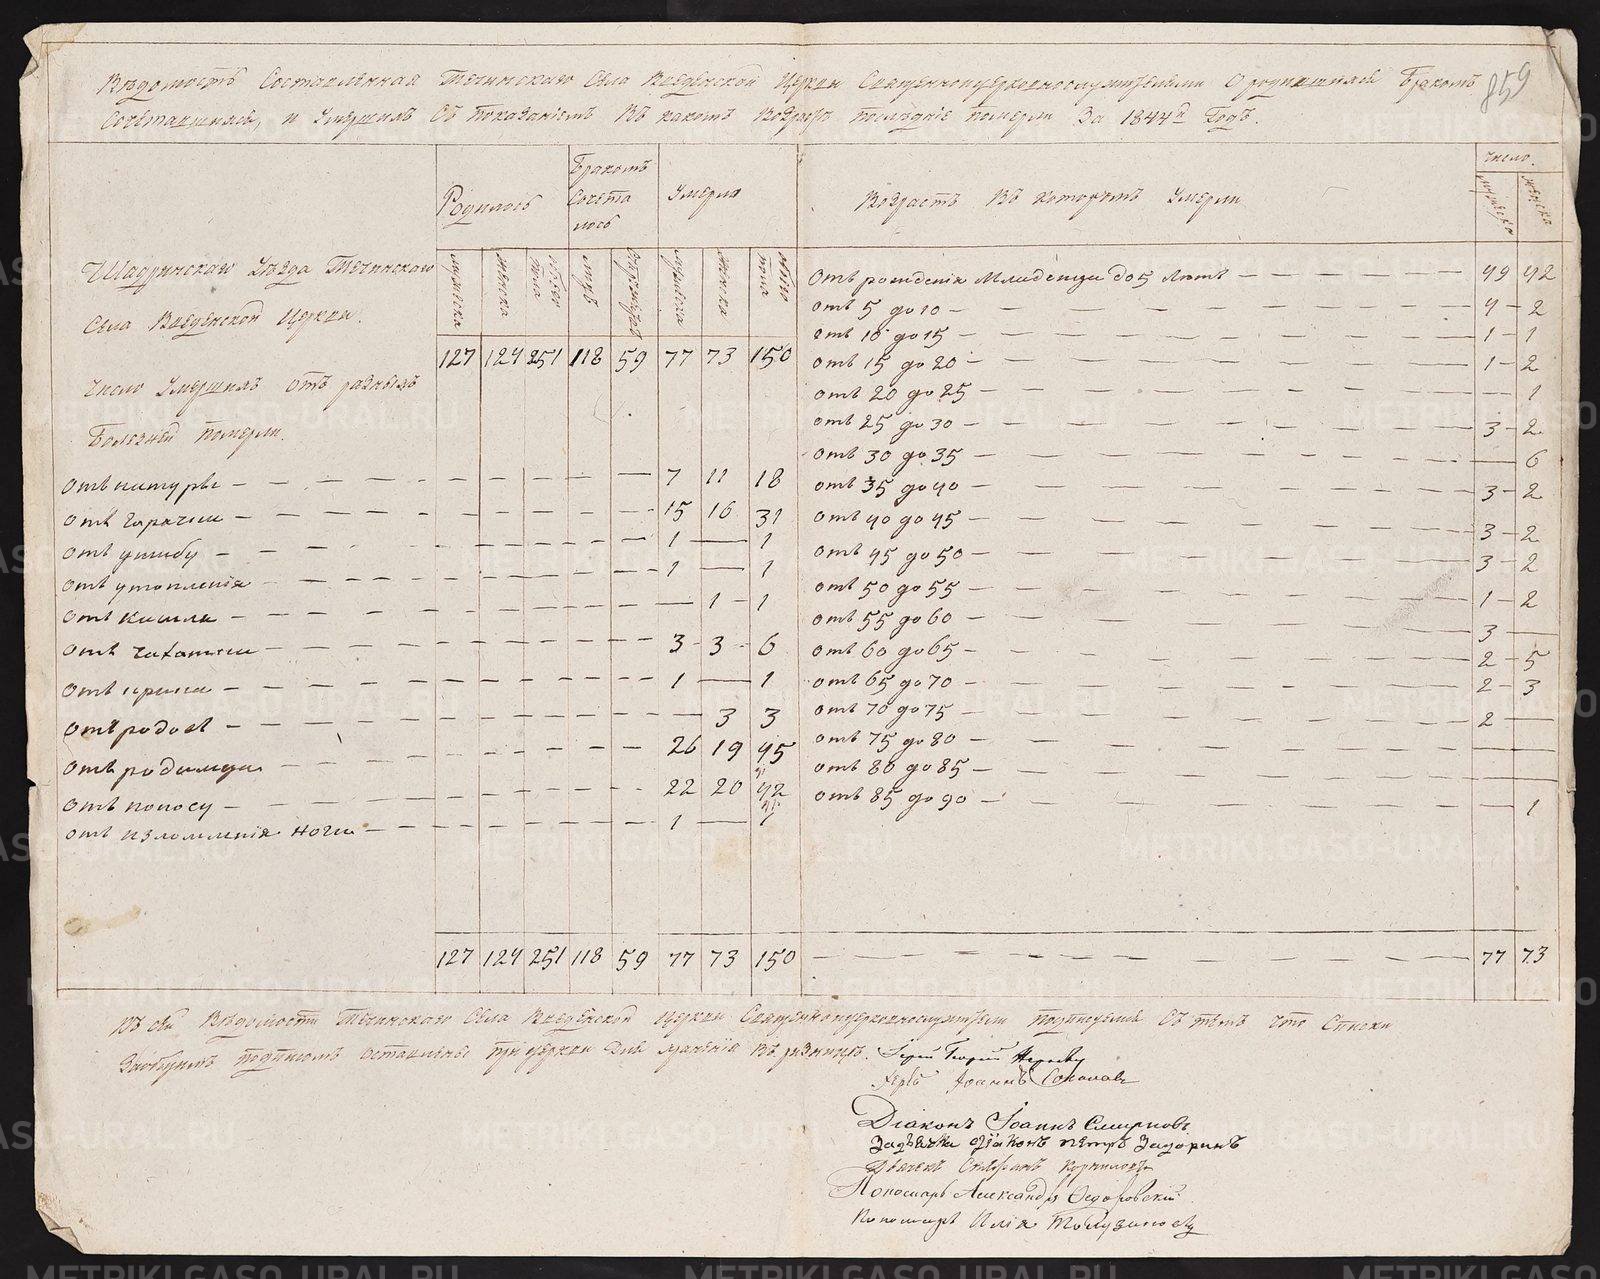 859
Вѣдомость Составленная Теченскаго Села Введенской Церкви Священноцерковнослужителями О родившихся Бракомъ
Сочетавшихся, и Умершихъ Съ показаніемъ Въ какомъ Возрастѣ послѣдніе померли За 1844й Годъ.
Родилось
Бракомъ Сочета лось
Умерло
Возрастъ Въ которомъ Умерли
Число.
мужеска
женска
мужеска
женска
обоего пола
мужеска
женска
обоего пола
Шадринскаго Уѣзда Теченскаго
Села Введенской Церкви.
127 124 251 118 59 77 73 150
Число Умершихъ отъ разныхъ
Болезней померли.
отъ натуры — 7 11 18
отъ горячки — 15 16 31
отъ ушибу — 1 — 1
отъ утопленія — 1 — 1
отъ кашля — — 1 1
отъ чахотки — 3 3 6
отъ — 1 — 1
отъ родовъ — — 3 3
отъ родимца — 26 19 45
отъ поносу — 22 20 42
отъ изломленія ноги — 1 — 1
127 124 251 118 59 77 73 150
Отъ рожденія Младенцы до 5 лѣтъ — 49 42
отъ 5 до 10 — 4 — 2
отъ 10 до 15 — 1 — 1
отъ 15 до 20 — 1 — 2
отъ 20 до 25 — — 1
отъ 25 до 30 — 3 — 2
отъ 30 до 35 — — 6
отъ 35 до 40 — 3 — 2
отъ 40 до 45 — 3 — 2
отъ 45 до 50 — 3 — 2
отъ 50 до 55 — 1 — 2
отъ 55 до 60 — 3 —
отъ 60 до 65 — 2 — 5
отъ 65 до 70 — 2 — 3
отъ 70 до 75 — 2 —
отъ 75 до 80 — —
отъ 80 до 85 — —
отъ 85 до 90 — — 1
77 73
Къ сей Вѣдомости Теченскаго Села Введенской Церкви Священноцерковнослужители Подписуемся Съ тѣмъ что Списки
подписомъ оставлены при церкви Для храненія Въ ризницѣ.
Іерей Георгій
Іерей Іоаннъ Соколовъ
Діаконъ Іоаннъ Смирновъ
діаконъ петръ Задоринъ
Дьячекъ Корниловъ
Пономарь Александръ Федоровскій
Пономарь Илія
METRIKI.GASO-URAL.RU